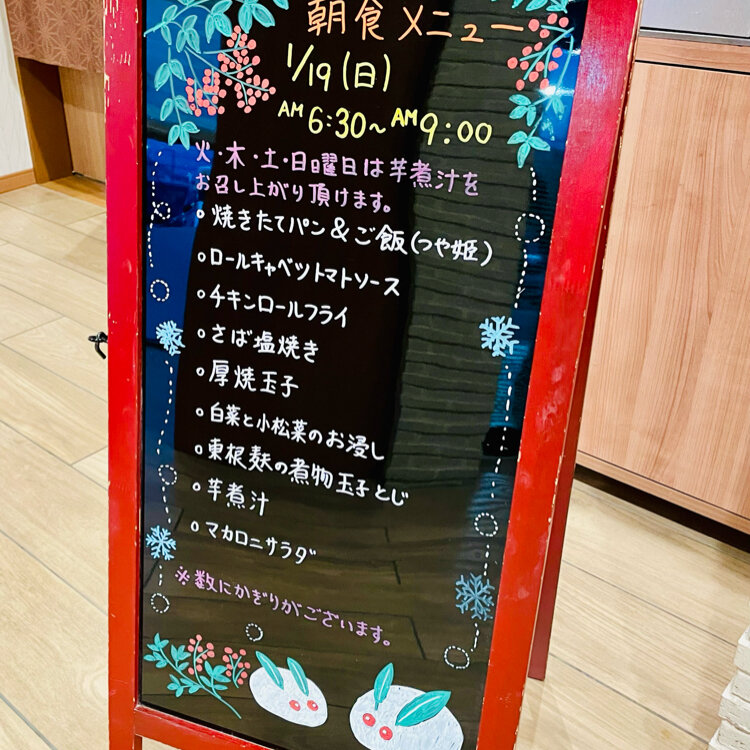 朝食メニュー
1/19(日)
AM6:30~AM9:00
火・木・土・日曜日は芋煮汁を
お召し上がり頂けます。
○焼きたてパン&ご飯(つや姫)
○ロールキャベツトマトソース
○チキンロールフライ
○さば塩焼き
○厚焼玉子
○白菜と小松菜のお浸し
○東根麩の煮物玉子とじ
○芋煮汁
○マカロニサラダ
※数にかぎりがございます。